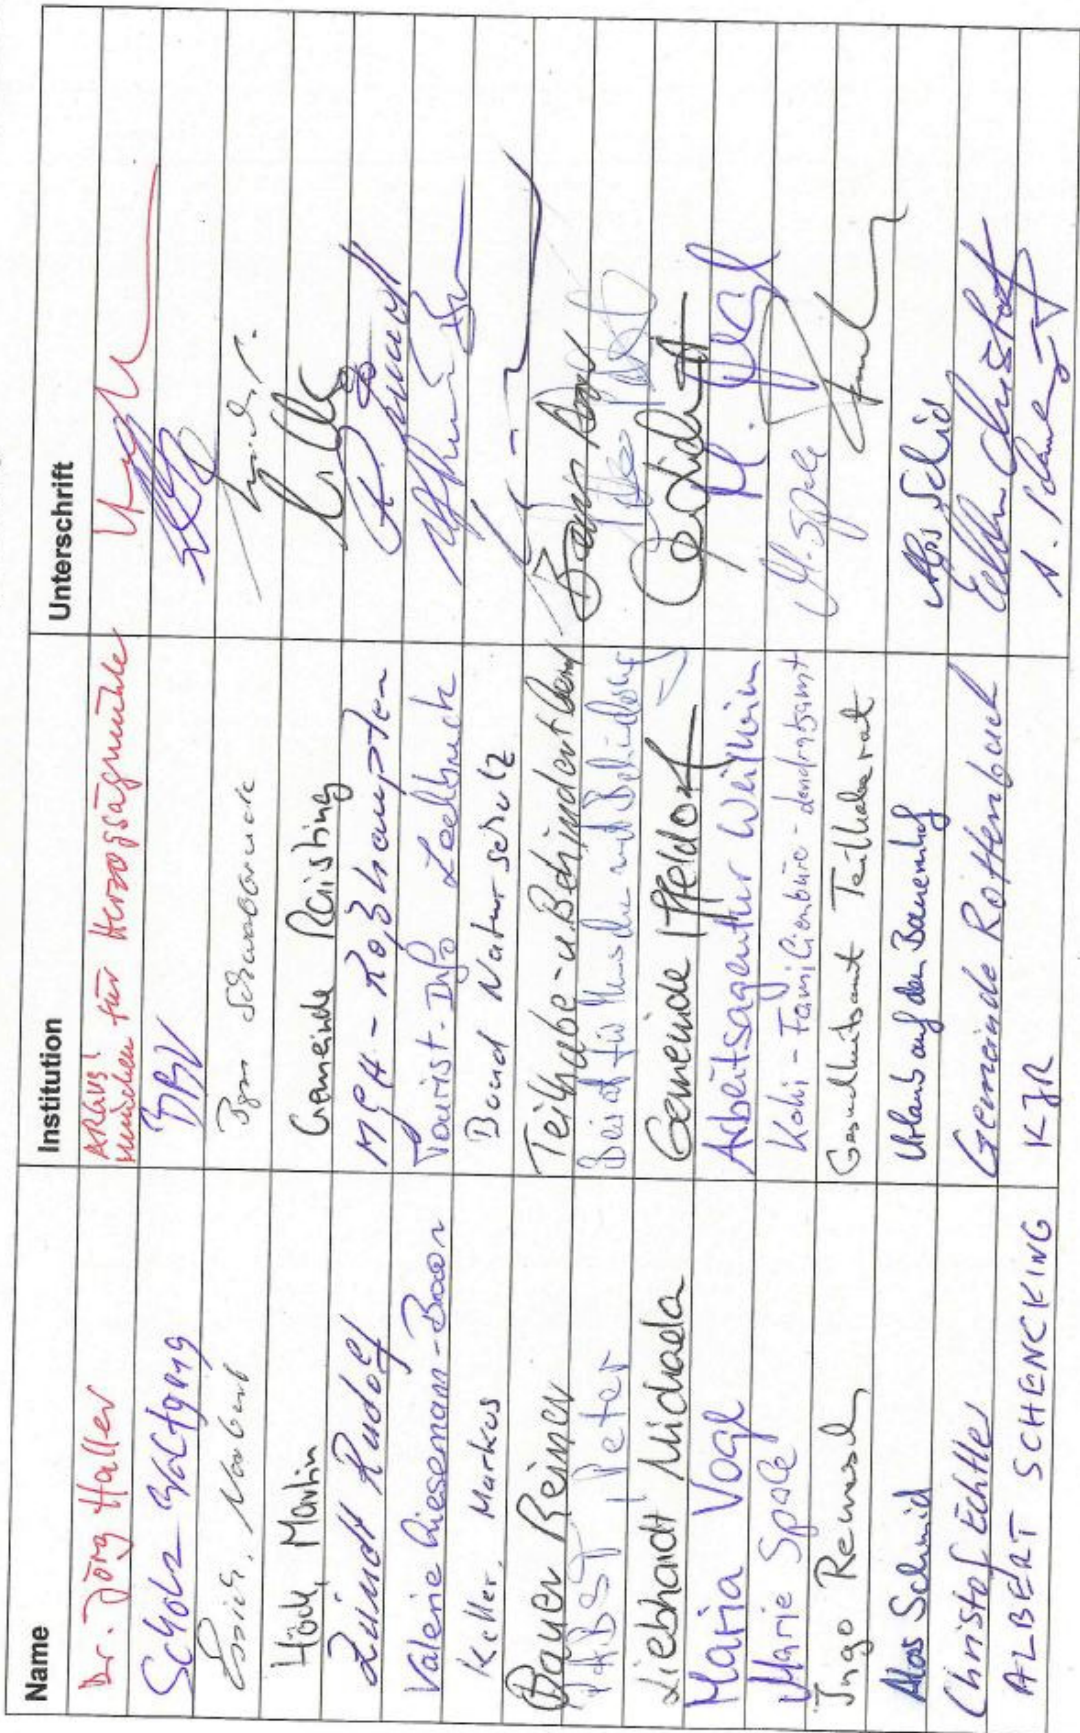 Name Institution Unterschrift
Dr. Jörg Haller ARGUS! Menschen für Herzogsägmühle
Scholz Wolfgang BBV
Norbert Bgm
Höck, Martin Gemeinde Raisting
Zündt Rudolf MGH - Roßhaupten R. Zündt
Valerie Wiesemann-Braun Tourist-Info Lechbruck
Keller, Markus Bund Naturschutz
Bauer Reiner Teilhabe- u. Behindertenb.
PABST, Peter Beirat für Menschen mit Behinderung
Liebhardt Michaela Gemeinde Iffeldorf
Maria Vogl Arbeitsagentur Weilheim M. Vogl
Marie Späle Kohi - Familienbüro - Landratsamt M. Späle
Ingo Remesch Gesundheitsamt Teilhaberat
Alos Schmid Urlaub auf dem Bauernhof
Christof Echtler Gemeinde Rottenbuch
ALBERT SCHENCKING KJR